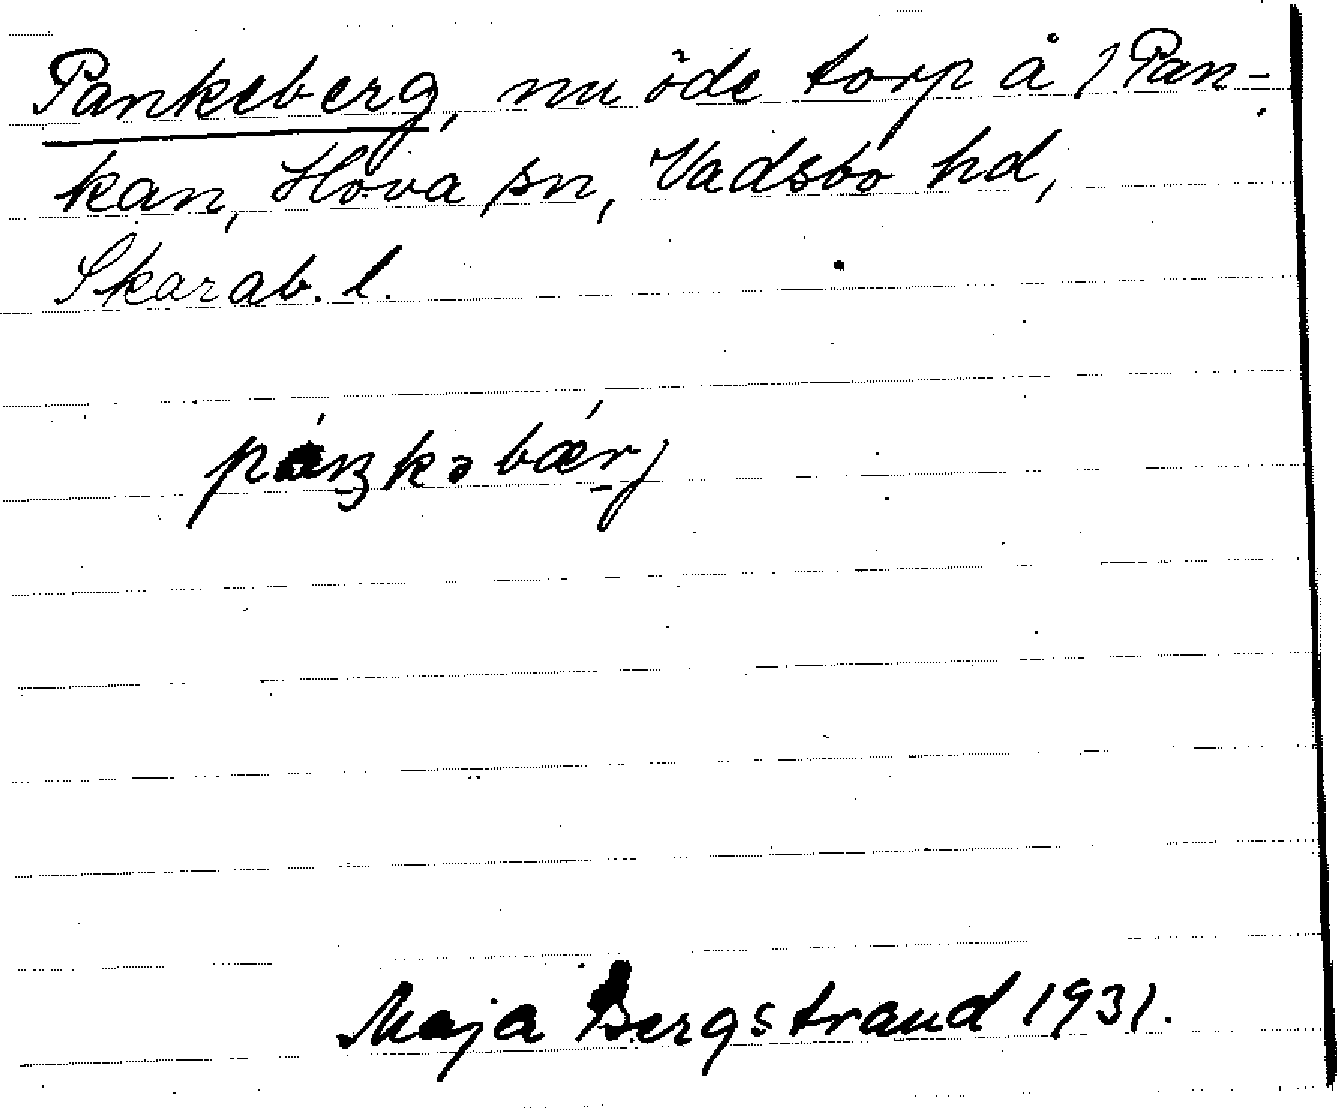 Pankeberg, nu öde torp å 1 Pan-
kan, Hova sn, Vadsbo hd,
Skarab. l.
páŋkəbæ̀rj
Maja Bergstrand 1931.